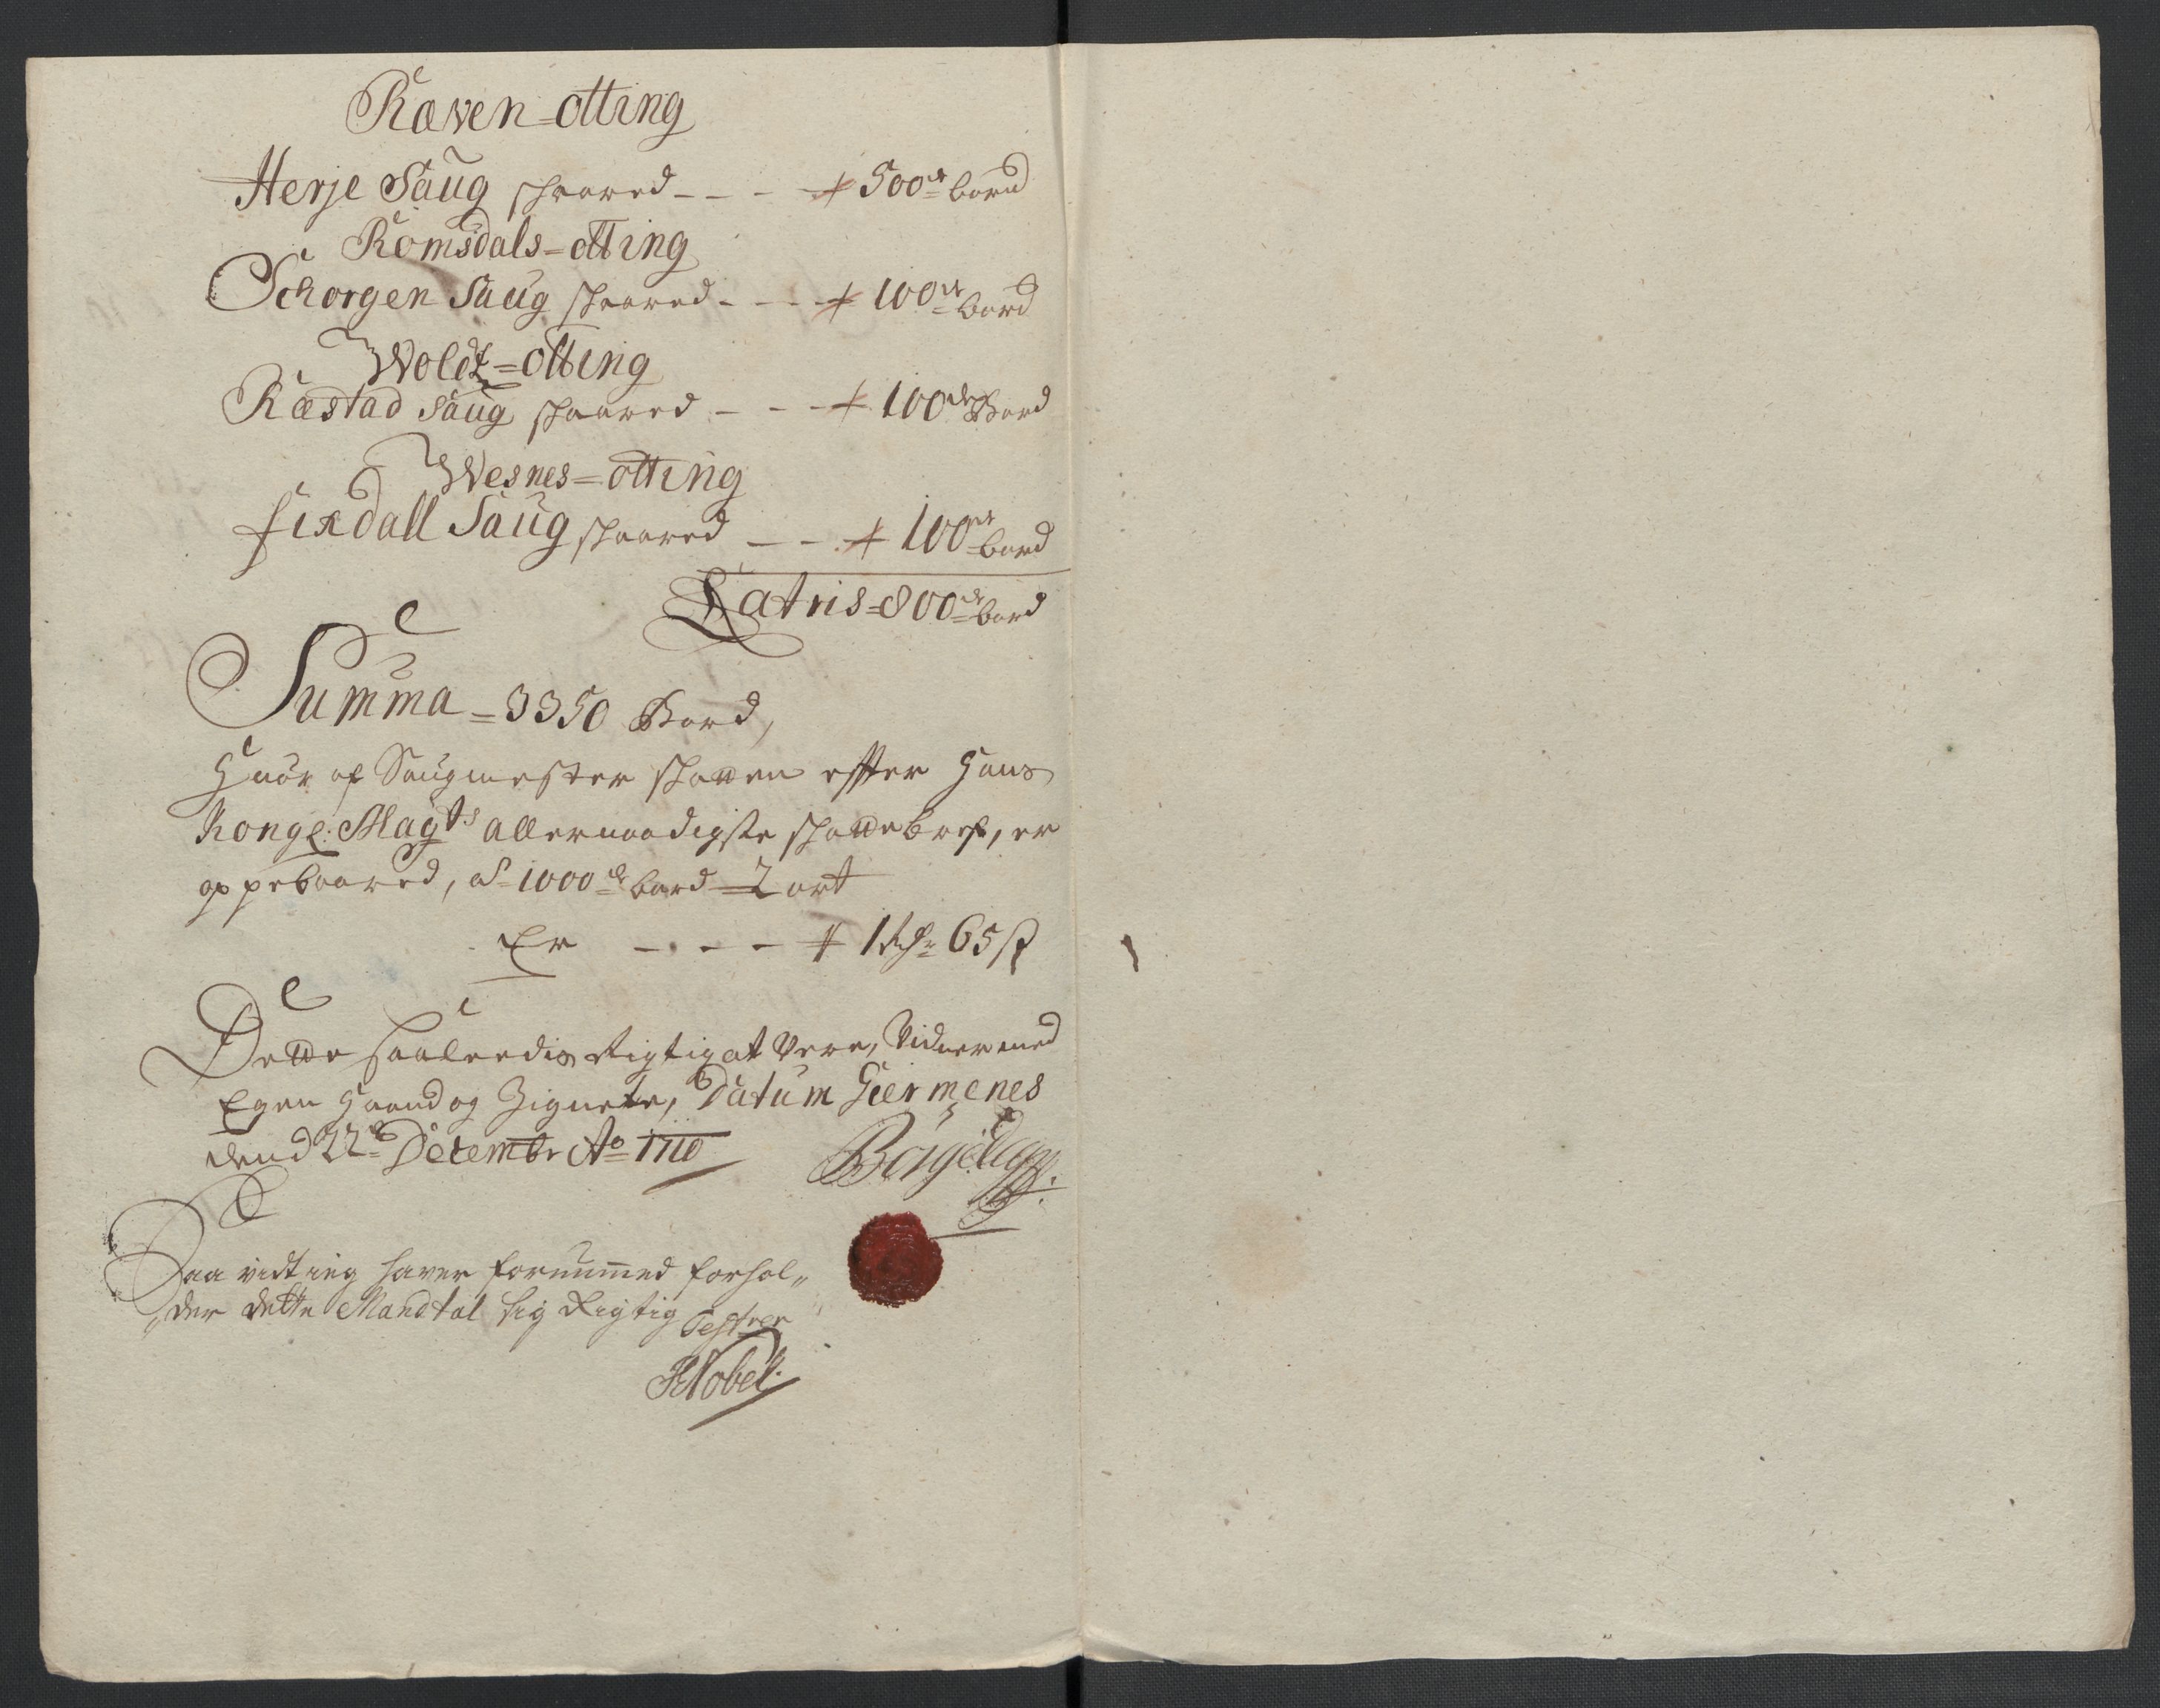 Ræven=otting
Herje Saug schaared - - - 500de bord
Romsdals=otting
Schorgen Saug schaared - - - 100de bord
Woldt=otting
Ræstad Saug schaared - - - 100de Bord
Wesnes=otting
Fixdall Saug schaared - - - 100de bord
Latris=800de bord
Summa=3350 Bord,
Huor af Saugmester schatten efter Hans
Kongl: Maytts allernaadigste schattebref, er
oppebaared, af 1000de bord 2 ort
Er - - - - 1 Rdr 65 s
Dette saaleedis Rigtig at Vere, Vidner med
Egen Haand og Zignete, Datum Giermenes
dend 22de Decembr Ao 1710
Saa vidt ieg haver fornummed forhol-
der dette Mandtal sig Rigtig Testerer
Nobel.